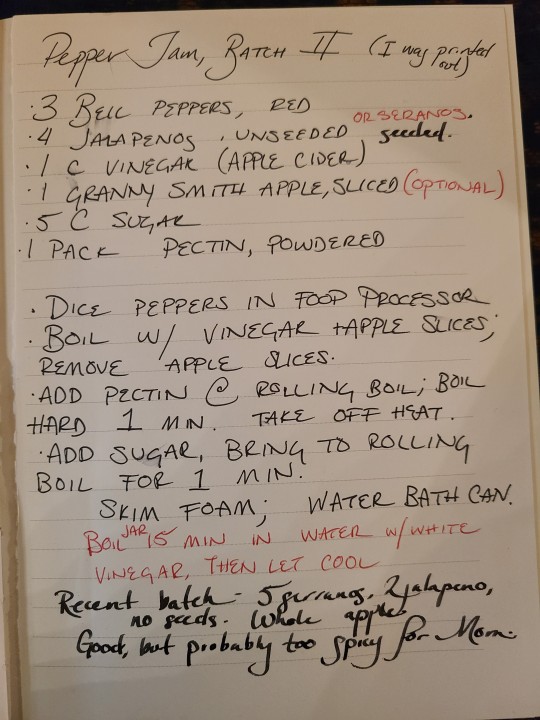 Pepper Jam, Batch II (I was printed out)
· 3 BELL PEPPERS, RED
· 4 JALAPENOS, UNSEEDED OR SERANOS. seeded.
· 1 C VINEGAR (APPLE CIDER)
· 1 GRANNY SMITH APPLE, SLICED (OPTIONAL)
· 5 C SUGAR
· 1 PACK PECTIN, POWDERED
· DICE PEPPERS IN FOOD PROCESSOR
· BOIL W/ VINEGAR + APPLE SLICES;
REMOVE APPLE SLICES.
· ADD PECTIN @ ROLLING BOIL; BOIL
HARD 1 MIN. TAKE OFF HEAT.
· ADD SUGAR, BRING TO ROLLING
BOIL FOR 1 MIN.
SKIM FOAM; WATER BATH CAN.
BOIL JAR 15 MIN IN WATER W/ WHITE
VINEGAR, THEN LET COOL
Recent batch - 5 serranos, 2 jalapeno,
no seeds. Whole apple
Good, but probably too spicy for Mom.